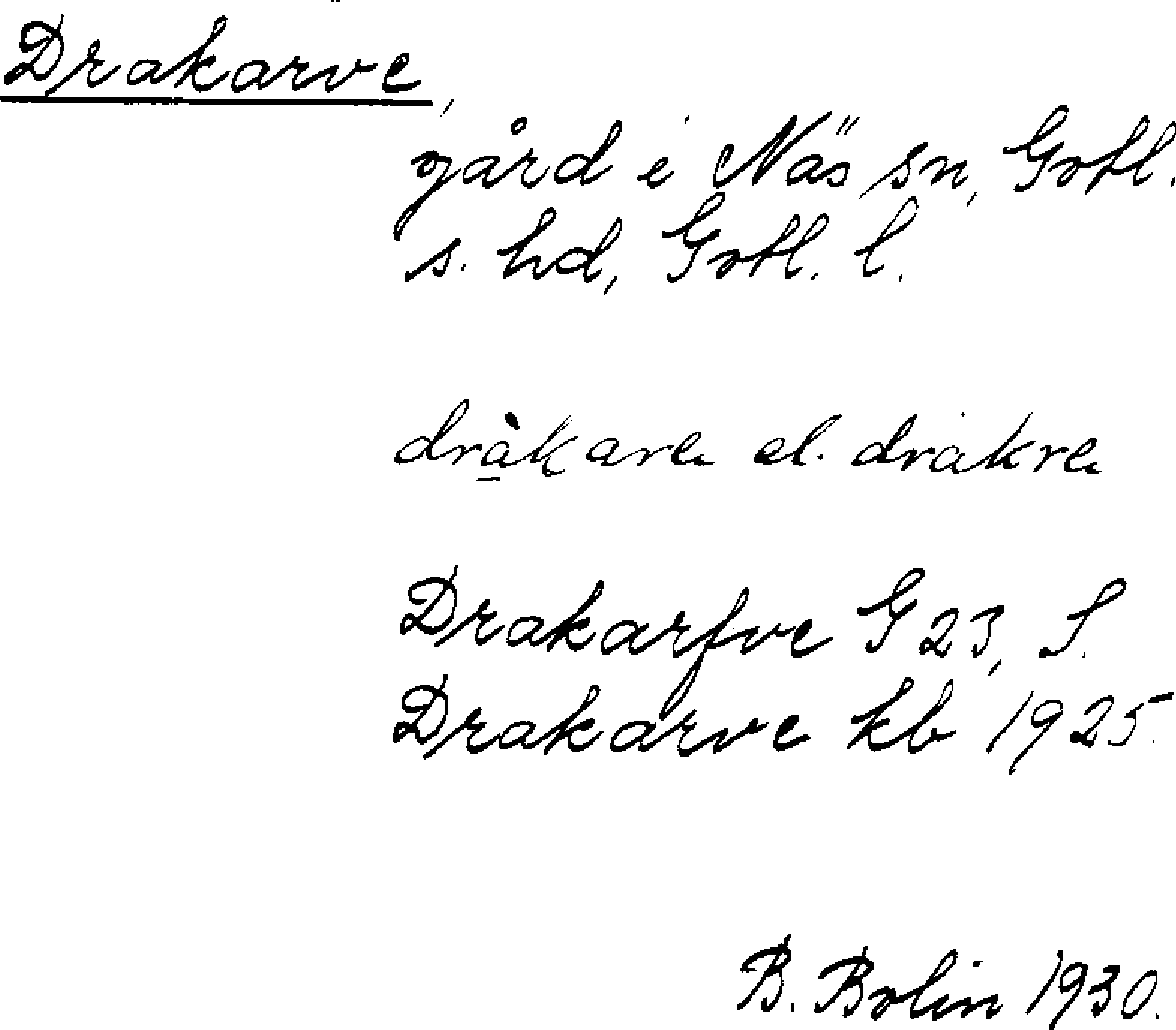 Drakarve,
gård i Näs sn, Gotl.
s. hd, Gotl. l.
dràkare el. drakre
Drakarfve G 23, S.
Drakarve kb 1925.
B. Bolin 1930.